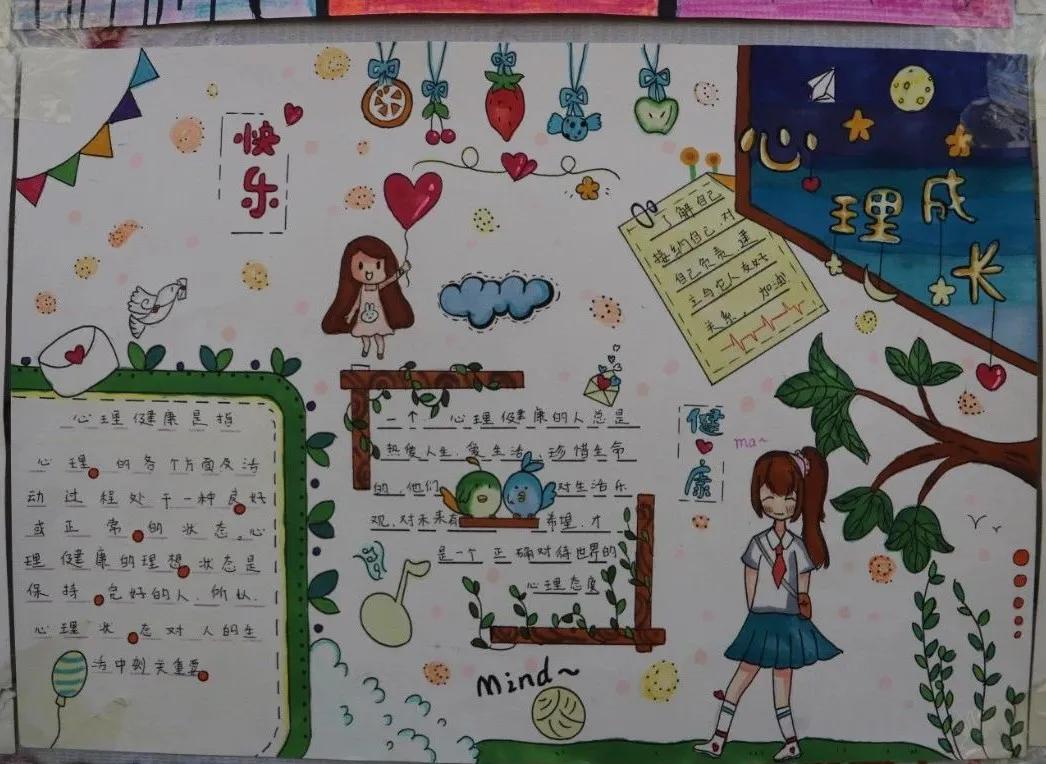 快乐
心理成长
了解自己
接纳自己.对
自己负责.建
立与它人友好
关系. 加油
心理健康是指
心理的各个方面及活
动过程处于一种良好
或正常的状态。心
理健康的理想状态是
保持
好的人.所以.
心理状态对人的生
活中到关重要
一个心理健康的人总是
热爱人生.爱生活.珍惜生命
的.他们对生活乐
观.对未来有希望.才
是一个正确对待世界的
心理态度
健康
ma~
Mind~